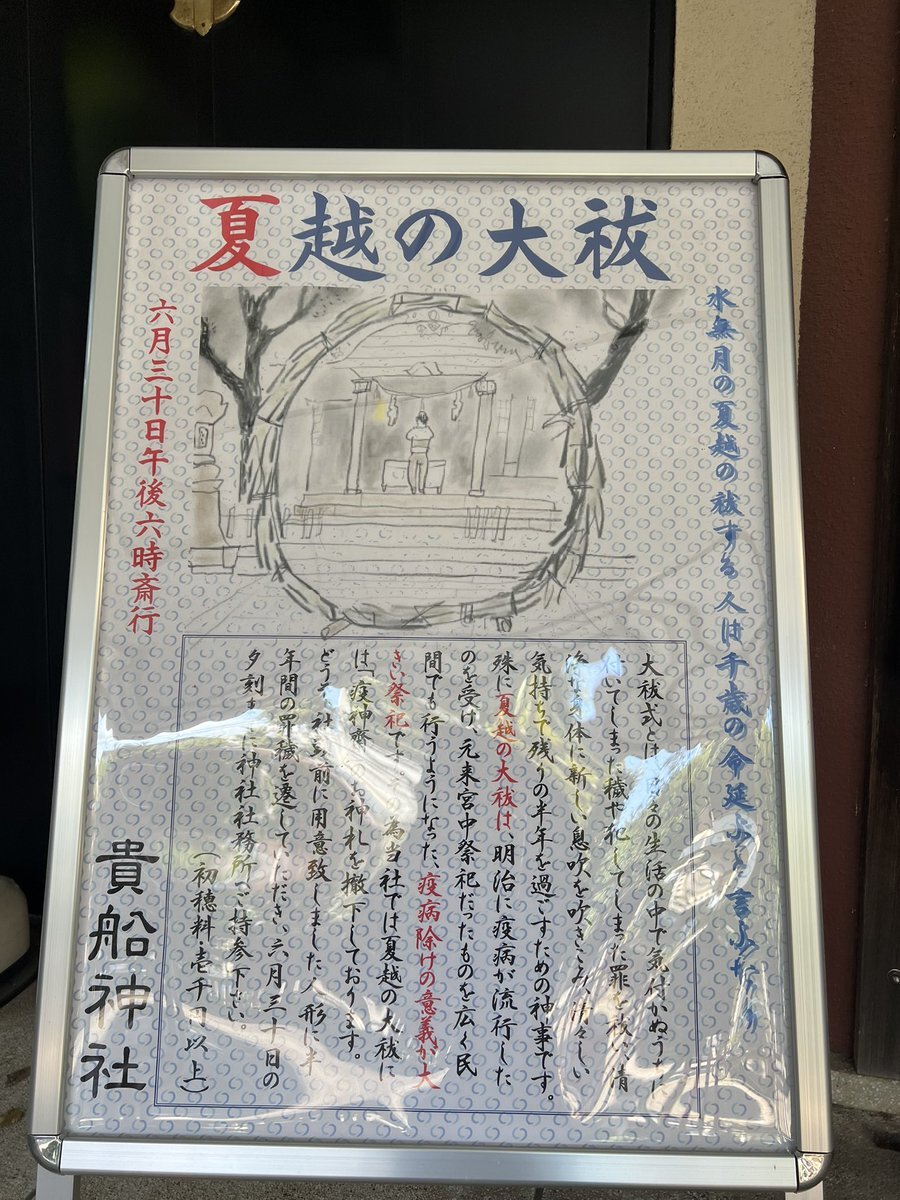 夏越の大祓
水無月の夏越の祓する人は千歳の命延ふと言ふなり
六月三十日午後六時斎行
大祓式とは、日々の生活の中で気付かぬうちに
付いてしまった穢や犯してしまった罪を祓い、清
な身体に新しい息吹を吹きこみ、清々しい
気持ちで残りの半年を過ごすための神事です。
殊に夏越の大祓は、明治に疫病が流行した
のを受け、元来宮中祭祀だったものを広く民
間でも行うようになった、疫病除けの意義が大
きい祭祀です。その為当社では夏越の大祓に
は「疫神齋」のお神札を撤下しております。
どうぞ、社頭前に用意致しました人形に半
年間の罪穢を遷していただき、六月三十日の
夕刻までに神社社務所へご持参下さい。
（初穂料・壱千円以上）
貴船神社